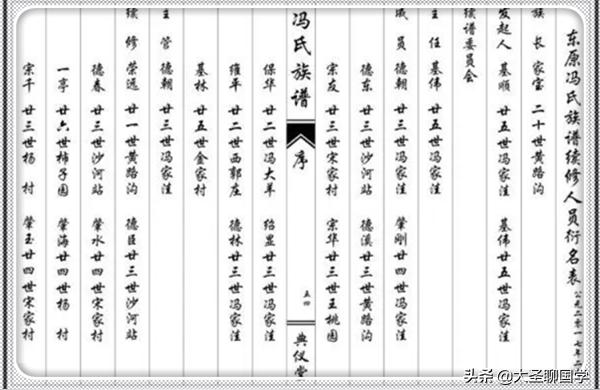 东原冯氏族谱续修人员衍名表 公元二零一七年二
族 长 家宝 二十世黄路沟
发起人 基顺 廿五世冯家洼 基伟廿五世冯家洼
续谱委员会
主 任 基伟 廿五世冯家洼
成 员 德朝 廿三世冯家洼 肇刚廿四世冯家洼
德东 廿三世沙河站 德溪廿三世黄路沟
宗友 廿三世宋家村 宗华廿三世王桃园
冯氏族谱 序 五四 典仪堂
保华 廿二世冯大羊 绍显廿三世冯家洼
维平 廿二世西郭庄 德林廿三世冯家洼
基林 廿五世金家村
主 管 德朝 廿三世冯家洼
续 修 荣远 廿一世黄路沟 德臣廿三世沙河站
德春 廿三世沙河站 肇水廿四世宋家村
一亭 廿六世柿子园 肇海廿四世杨 村
宗千 廿三世杨 村 肇玉廿四世宋家村
头条 @大圣聊国学